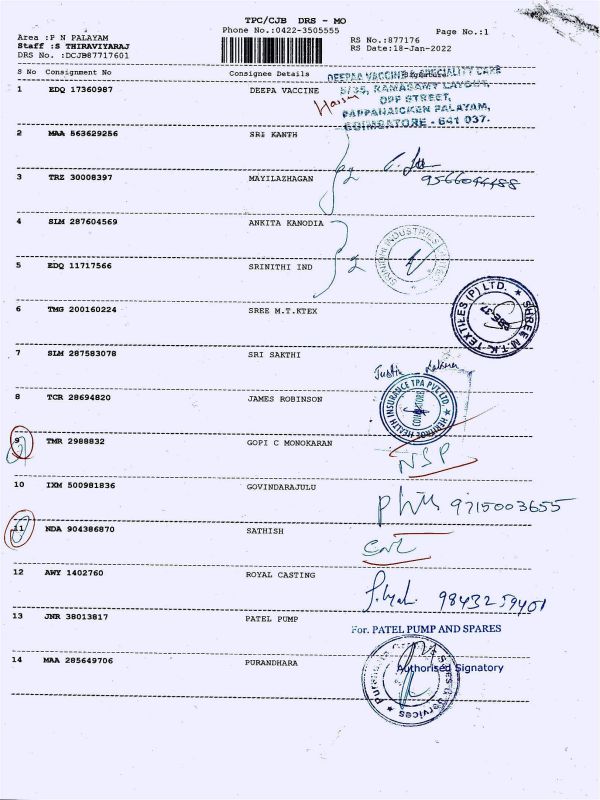 TPC/CJB DRS - MO
Phone No.:0422-3505555
Page No.:1
Area :P N PALAYAM
Staff :S THIRAVIYARAJ
DRS No. :DCJB87717601
RS No.:877176
RS Date:18-Jan-2022
S No Consignment No Consignee Details Signature
1 EDQ 17360987 DEEPA VACCINE
DEEPAA VACCINE SPECIALITY CARE
5/35, RAMASAMY LAYOUT,
OPP STREET,
PAPPANAICKEN PALAYAM,
COIMBATORE - 641 037.
2 MAA 563629256 SRI KANTH
3 TRZ 30008397 MAYILAZHAGAN
9566044488
4 SLM 287604569 ANKITA KANODIA
5 EDQ 11717566 SRINITHI IND
SRINIDHI INDUSTRIES
6 TMG 200160224 SREE M.T.KTEX
SHREE M.T.K. TEXTILES (P) LTD.
CBE-37
7 SLM 287583078 SRI SAKTHI
8 TCR 28694820 JAMES ROBINSON
HEALTH INSURANCE TPA PVT LTD.
COIMBATORE
9 TMR 2988832 GOPI C MONOKARAN
NSP
10 IXM 500981836 GOVINDARAJULU
9715003655
11 NDA 904386870 SATHISH
12 AWY 1402760 ROYAL CASTING
9843259401
13 JNR 38013817 PATEL PUMP
For. PATEL PUMP AND SPARES
14 MAA 285649706 PURANDHARA
Authorised Signatory